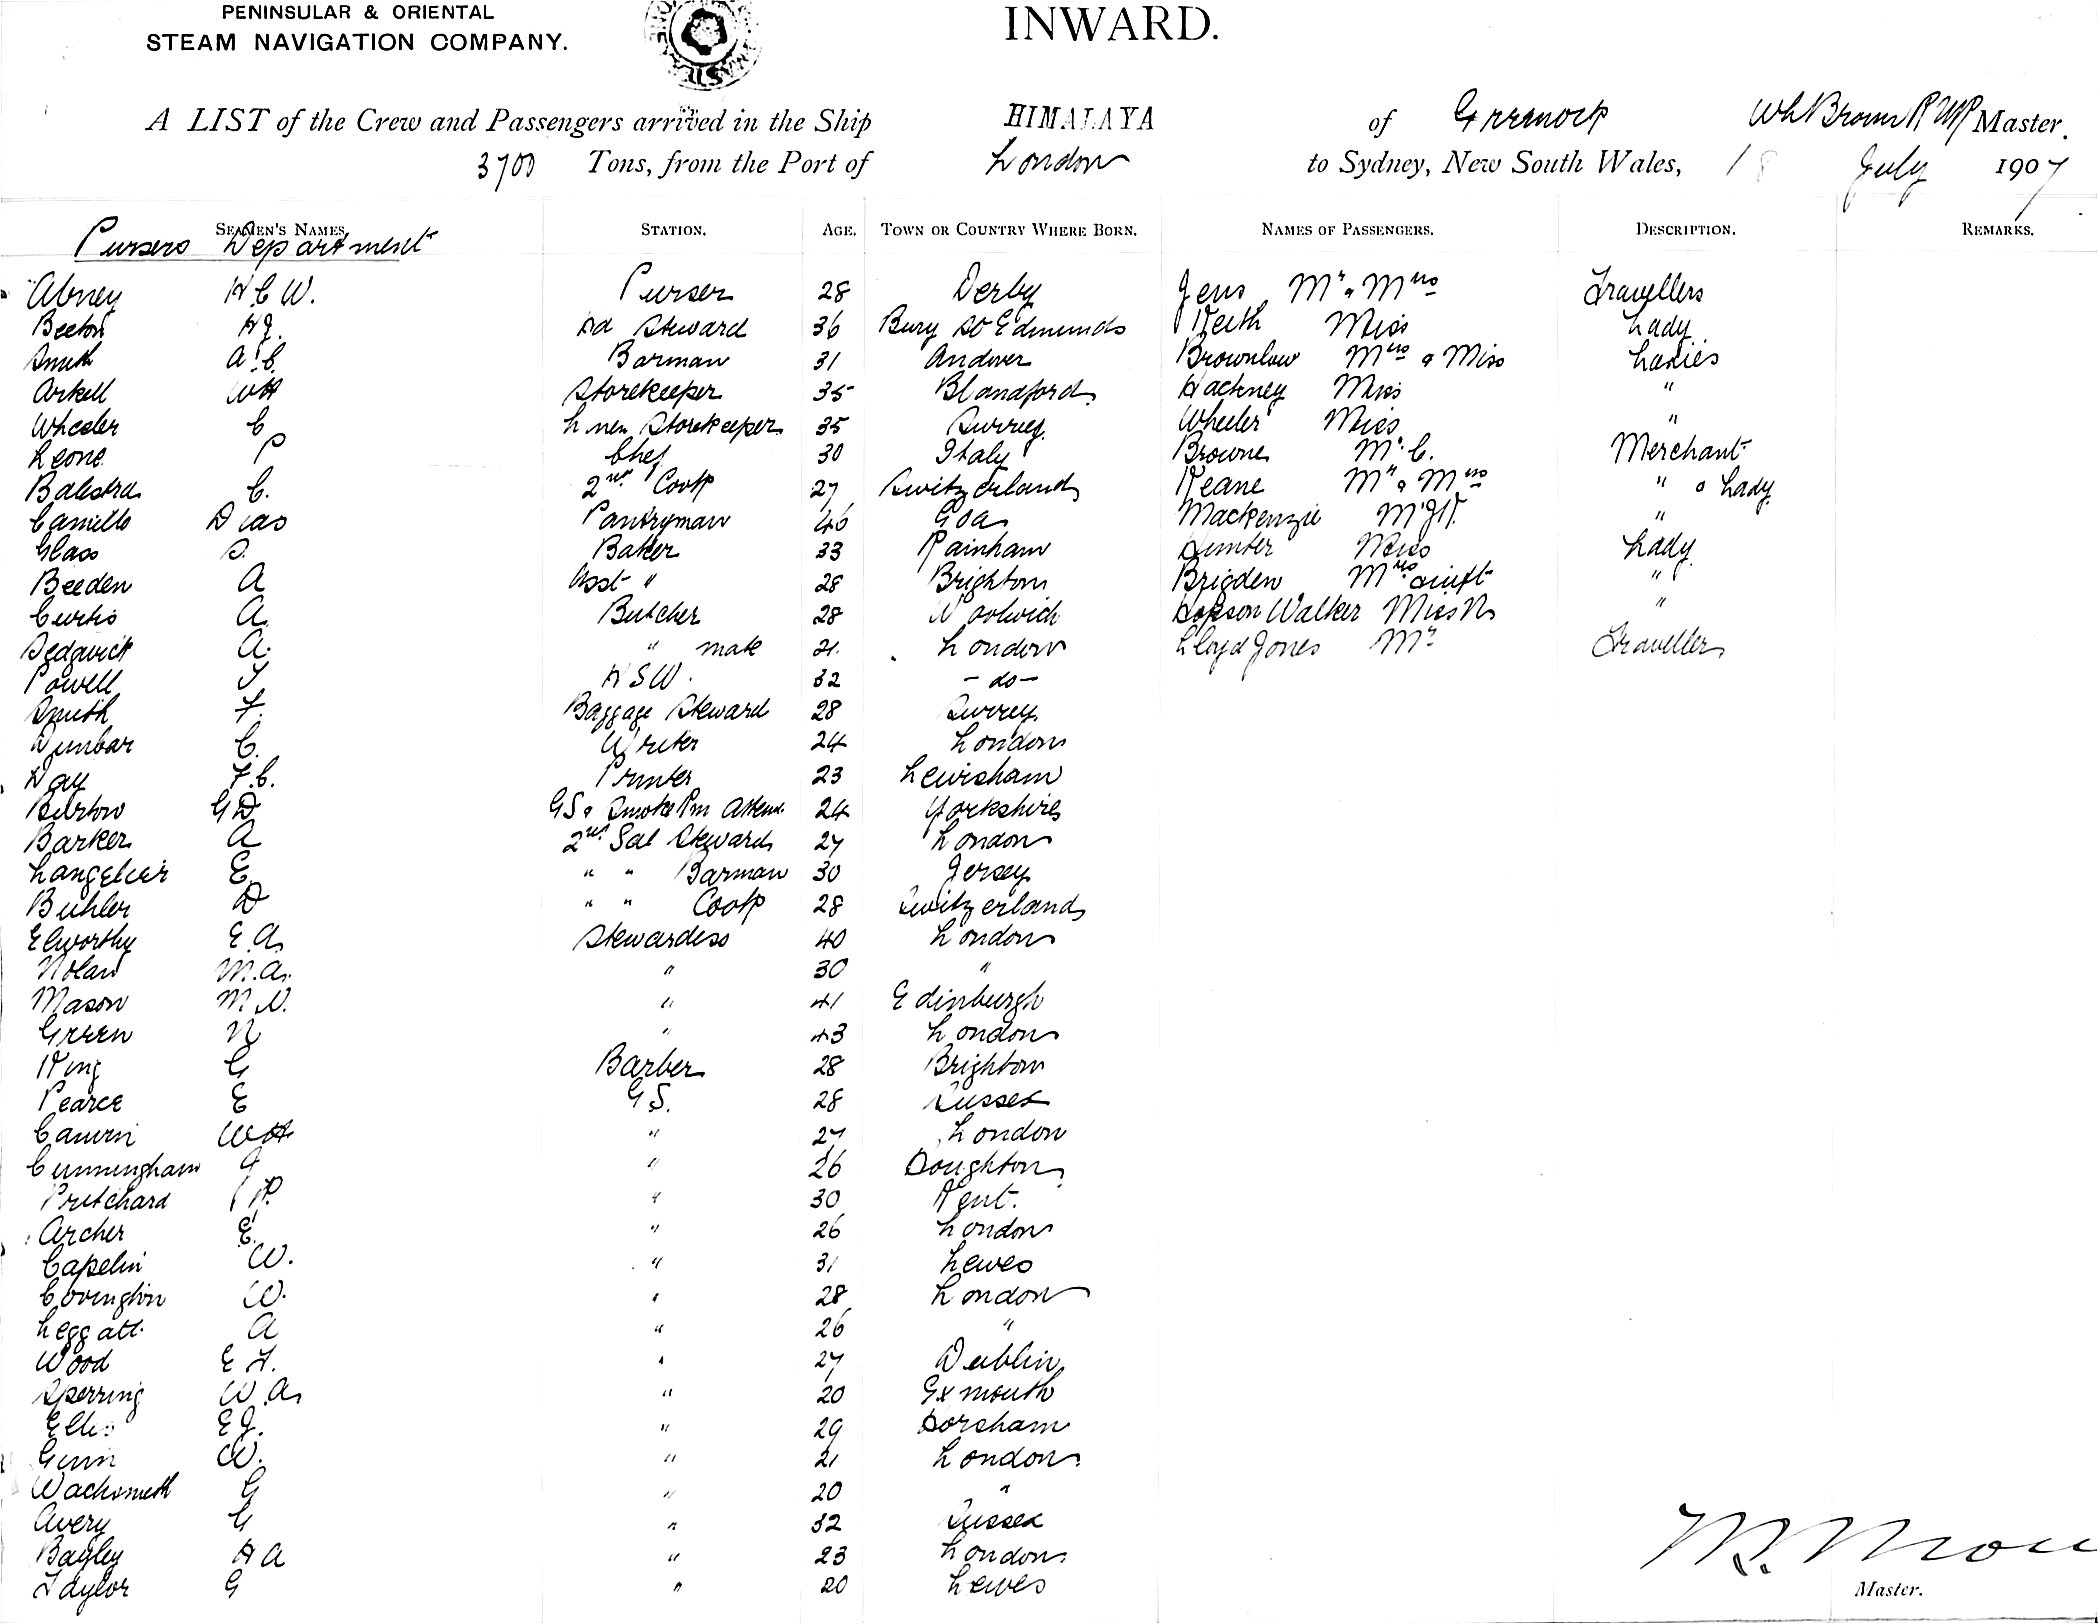 PENINSULAR & ORIENTAL
STEAM NAVIGATION COMPANY.
INWARD.
A LIST of the Crew and Passengers arrived in the Ship HIMALAYA of Greenock Master.
3700 Tons, from the Port of London to Sydney, New South Wales, 18 July 1907
SEAMEN'S NAMES. STATION. AGE. TOWN OR COUNTRY WHERE BORN. NAMES OF PASSENGERS. DESCRIPTION. REMARKS.
Pursers Department
Abney H C W. Purser 28 Derby Jens Mr & Mrs Travellers
Beeton H J. Hd Steward 36 Bury St Edmunds Keith Miss Lady
Smith A. C. Barman 31 Andover Brownlow Mrs & Miss Ladies
Arkell W H Storekeeper 35 Blandford Hackney Miss "
Wheeler C Linen Storekeeper 35 Surrey Wheeler Miss "
Leone P Chef 30 Italy Browne Mr C. Merchant
Balestra C. 2nd Cook 27 Switzerland Keane Mr & Mrs " & Lady
Camillo Dias Pantryman 46 Goa Mackenzie Mr "
Glass S. Baker 33 Rainham Hunter Miss Lady
Beeden A Asst " 28 Brighton Brigden Mrs "
Curtis A. Butcher 28 Woolwich Hopson Walker Miss N "
Sedgwick A. " mate 21 London Lloyd Jones Mr Traveller
Powell 32 - do -
Smith F. Baggage Steward 28 Surrey
Dunbar C. Writer 24 London
Day F. C. Printer 23 Lewisham
Burton G D GS & Smoke Rm Attend. 24 Yorkshire
Barker A 2nd Sal Steward 27 London
Langelier E " " Barman 30 Jersey
Buhler D " " Cook 28 Switzerland
Elworthy E. A. Stewardess 40 London
Nolan M. A. " 30 "
Mason M. N. " 41 Edinburgh
Green N " 43 London
King G Barber 28 Brighton
Pearce E G S. 28 Sussex
W H " 27 London
Cunningham " 26 Houghton
Pritchard " 30 Kent.
Archer E. " 26 London
Capelin W. " 31 Lewes
Covington W. " 28 London
Leggatt A " 26 "
Wood E F. " 27 Dublin
Sperring W. A. " 20 Exmouth
Ellis E J. " 29 Horsham
Gunn W. " 21 London
Wachsmuth G " 20 "
Avery G " 32 Sussex
Bagley H A " 23 London
Taylor G " 20 Lewes
Master.